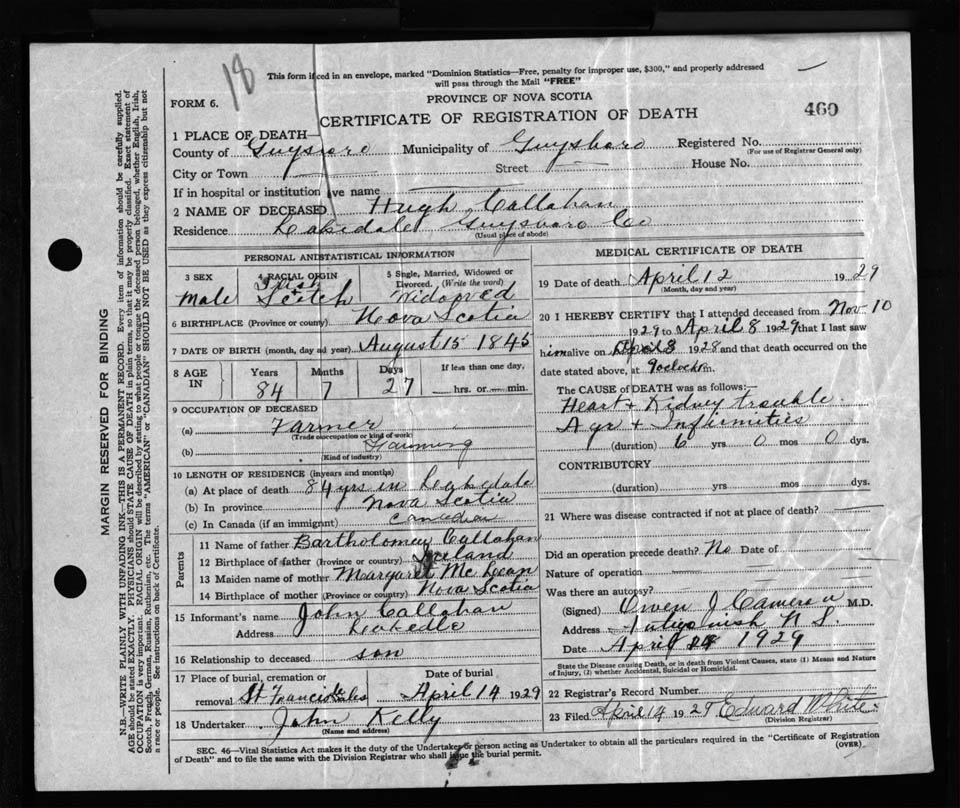 18
This form if ced in an envelope, marked "Dominion Statistics—Free, penalty for improper use, $300," and properly addressed
will pass through the Mail "FREE"
FORM 6.
PROVINCE OF NOVA SCOTIA
CERTIFICATE OF REGISTRATION OF DEATH
460
1 PLACE OF DEATH—
County of Guysboro Municipality of Guysboro Registered No.
(For use of Registrar General only)
City or Town Street House No.
If in hospital or institution ave name
2 NAME OF DECEASED Hugh Callahan
Residence Lakedale Guysboro Co
(Usual place of abode)
PERSONAL AND STATISTICAL INFORMATION
3 SEX
Male
4 RACIAL ORIGIN
Irish
Scotch
5 Single, Married, Widowed or
Divorced. (Write the word)
Widowed
6 BIRTHPLACE (Province or county) Nova Scotia
7 DATE OF BIRTH (month, day ad year) August 15 1845
8 AGE
IN
Years Months Days
If less than one day,
84 7 27 hrs. or min.
9 OCCUPATION OF DECEASED
(a) Farmer
(Trade occupation or kind of work)
(b) Farming
(Kind of industry)
10 LENGTH OF RESIDENCE (in years and months)
(a) At place of death 84 yrs in Lakedale
(b) In province Nova Scotia
(c) In Canada (if an immigrant) Canadian
Parents
11 Name of father Bartholomew Callahan
12 Birthplace of father (Province or country) Ireland
13 Maiden name of mother Margaret McLean
14 Birthplace of mother (Province or country) Nova Scotia
15 Informant's name John Callahan
Address Lakedle
16 Relationship to deceased son
17 Place of burial, cremation or
removal St Francis
Date of burial
April 14 1929
18 Undertaker John Kelly
(Name and address)
MEDICAL CERTIFICATE OF DEATH
19 Date of death April 12 1929
(Month, day and year)
20 I HEREBY CERTIFY that I attended deceased from Nov 10
1929 to April 8 1929 that I last saw
him alive on April 8 1928 and that death occurred on the
date stated above, at 9 oclock m.
The CAUSE of DEATH was as follows:—
Heart + Kidney trouble
Age + Infirmities
(duration) 6 yrs 0 mos 0 dys.
CONTRIBUTORY
(duration) yrs. mos. dys.
21 Where was disease contracted if not at place of death?
Did an operation precede death? No Date of
Nature of operation
Was there an autopsy?
(Signed) Owen J Cameron M.D.
Address Antigonish N S.
Date April 14 1929
State the Disease causing Death, or in death from Violent Causes, state (1) Means and Nature
of Injury, (2) whether Accidental, Suicidal or Homicidal.
22 Registrar's Record Number
23 Filed April 14 1929 Edward White
(Division Registrar)
SEC. 46—Vital Statistics Act makes it the duty of the Undertaker or person acting as Undertaker to obtain all the particulars required in the "Certificate of Registration
of Death" and to file the same with the Division Registrar who shall issue the burial permit.
(OVER)
MARGIN RESERVED FOR BINDING
N.B.—WRITE PLAINLY WITH UNFADING INK—THIS IS A PERMANENT RECORD. Every item of information should be carefully supplied.
AGE should be stated EXACTLY. PHYSICIANS should STATE CAUSE OF DEATH in plain terms, so that it may be properly classified. Exact statement of
OCCUPATION is very important. RACIAL ORIGIN will be described by stating to what people or tongue the deceased person belonged, whether English, Irish,
Scotch, French, German, Russian, Ruthenian, etc. The terms "AMERICAN" or "CANADIAN" SHOULD NOT BE USED as they express citizenship but not
a race or people. See instructions on back of Certificate.